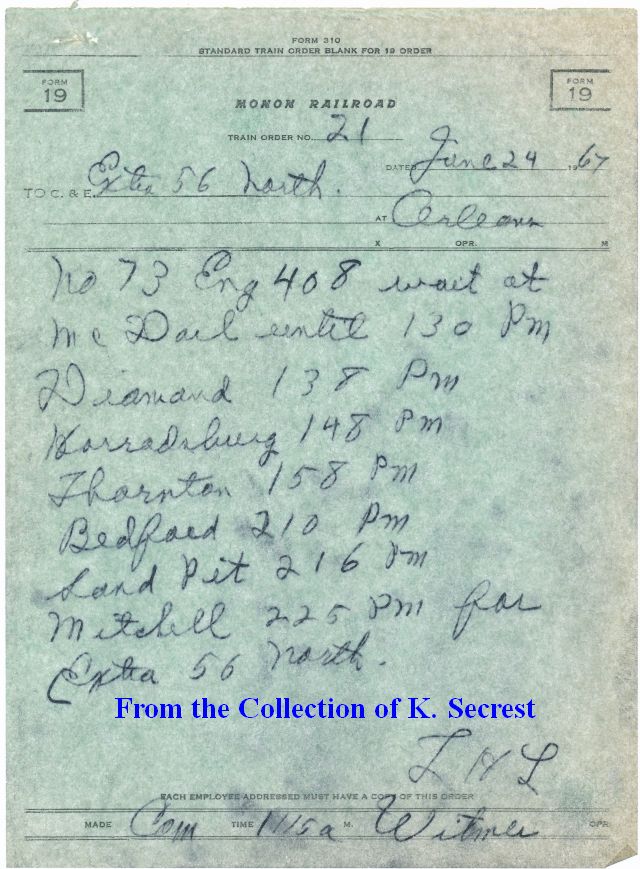 FORM 310
STANDARD TRAIN ORDER BLANK FOR 19 ORDER
FORM 19 FORM 19
MONON RAILROAD
TRAIN ORDER NO. 21
DATED June 24 1967
TO C. & E. Extra 56 North.
AT Orleans
X OPR. M
No 73 Eng 408 wait at
Mc Doel until 130 Pm
Diamond 138 Pm
Harrodsburg 148 Pm
Thornton 158 Pm
Bedford 210 Pm
Sand Pit 216 Pm
Mitchell 225 Pm for
Extra 56 North.
From the Collection of K. Secrest
L H L
EACH EMPLOYEE ADDRESSED MUST HAVE A COPY OF THIS ORDER
MADE Com TIME 1115a M. Witmer OPR